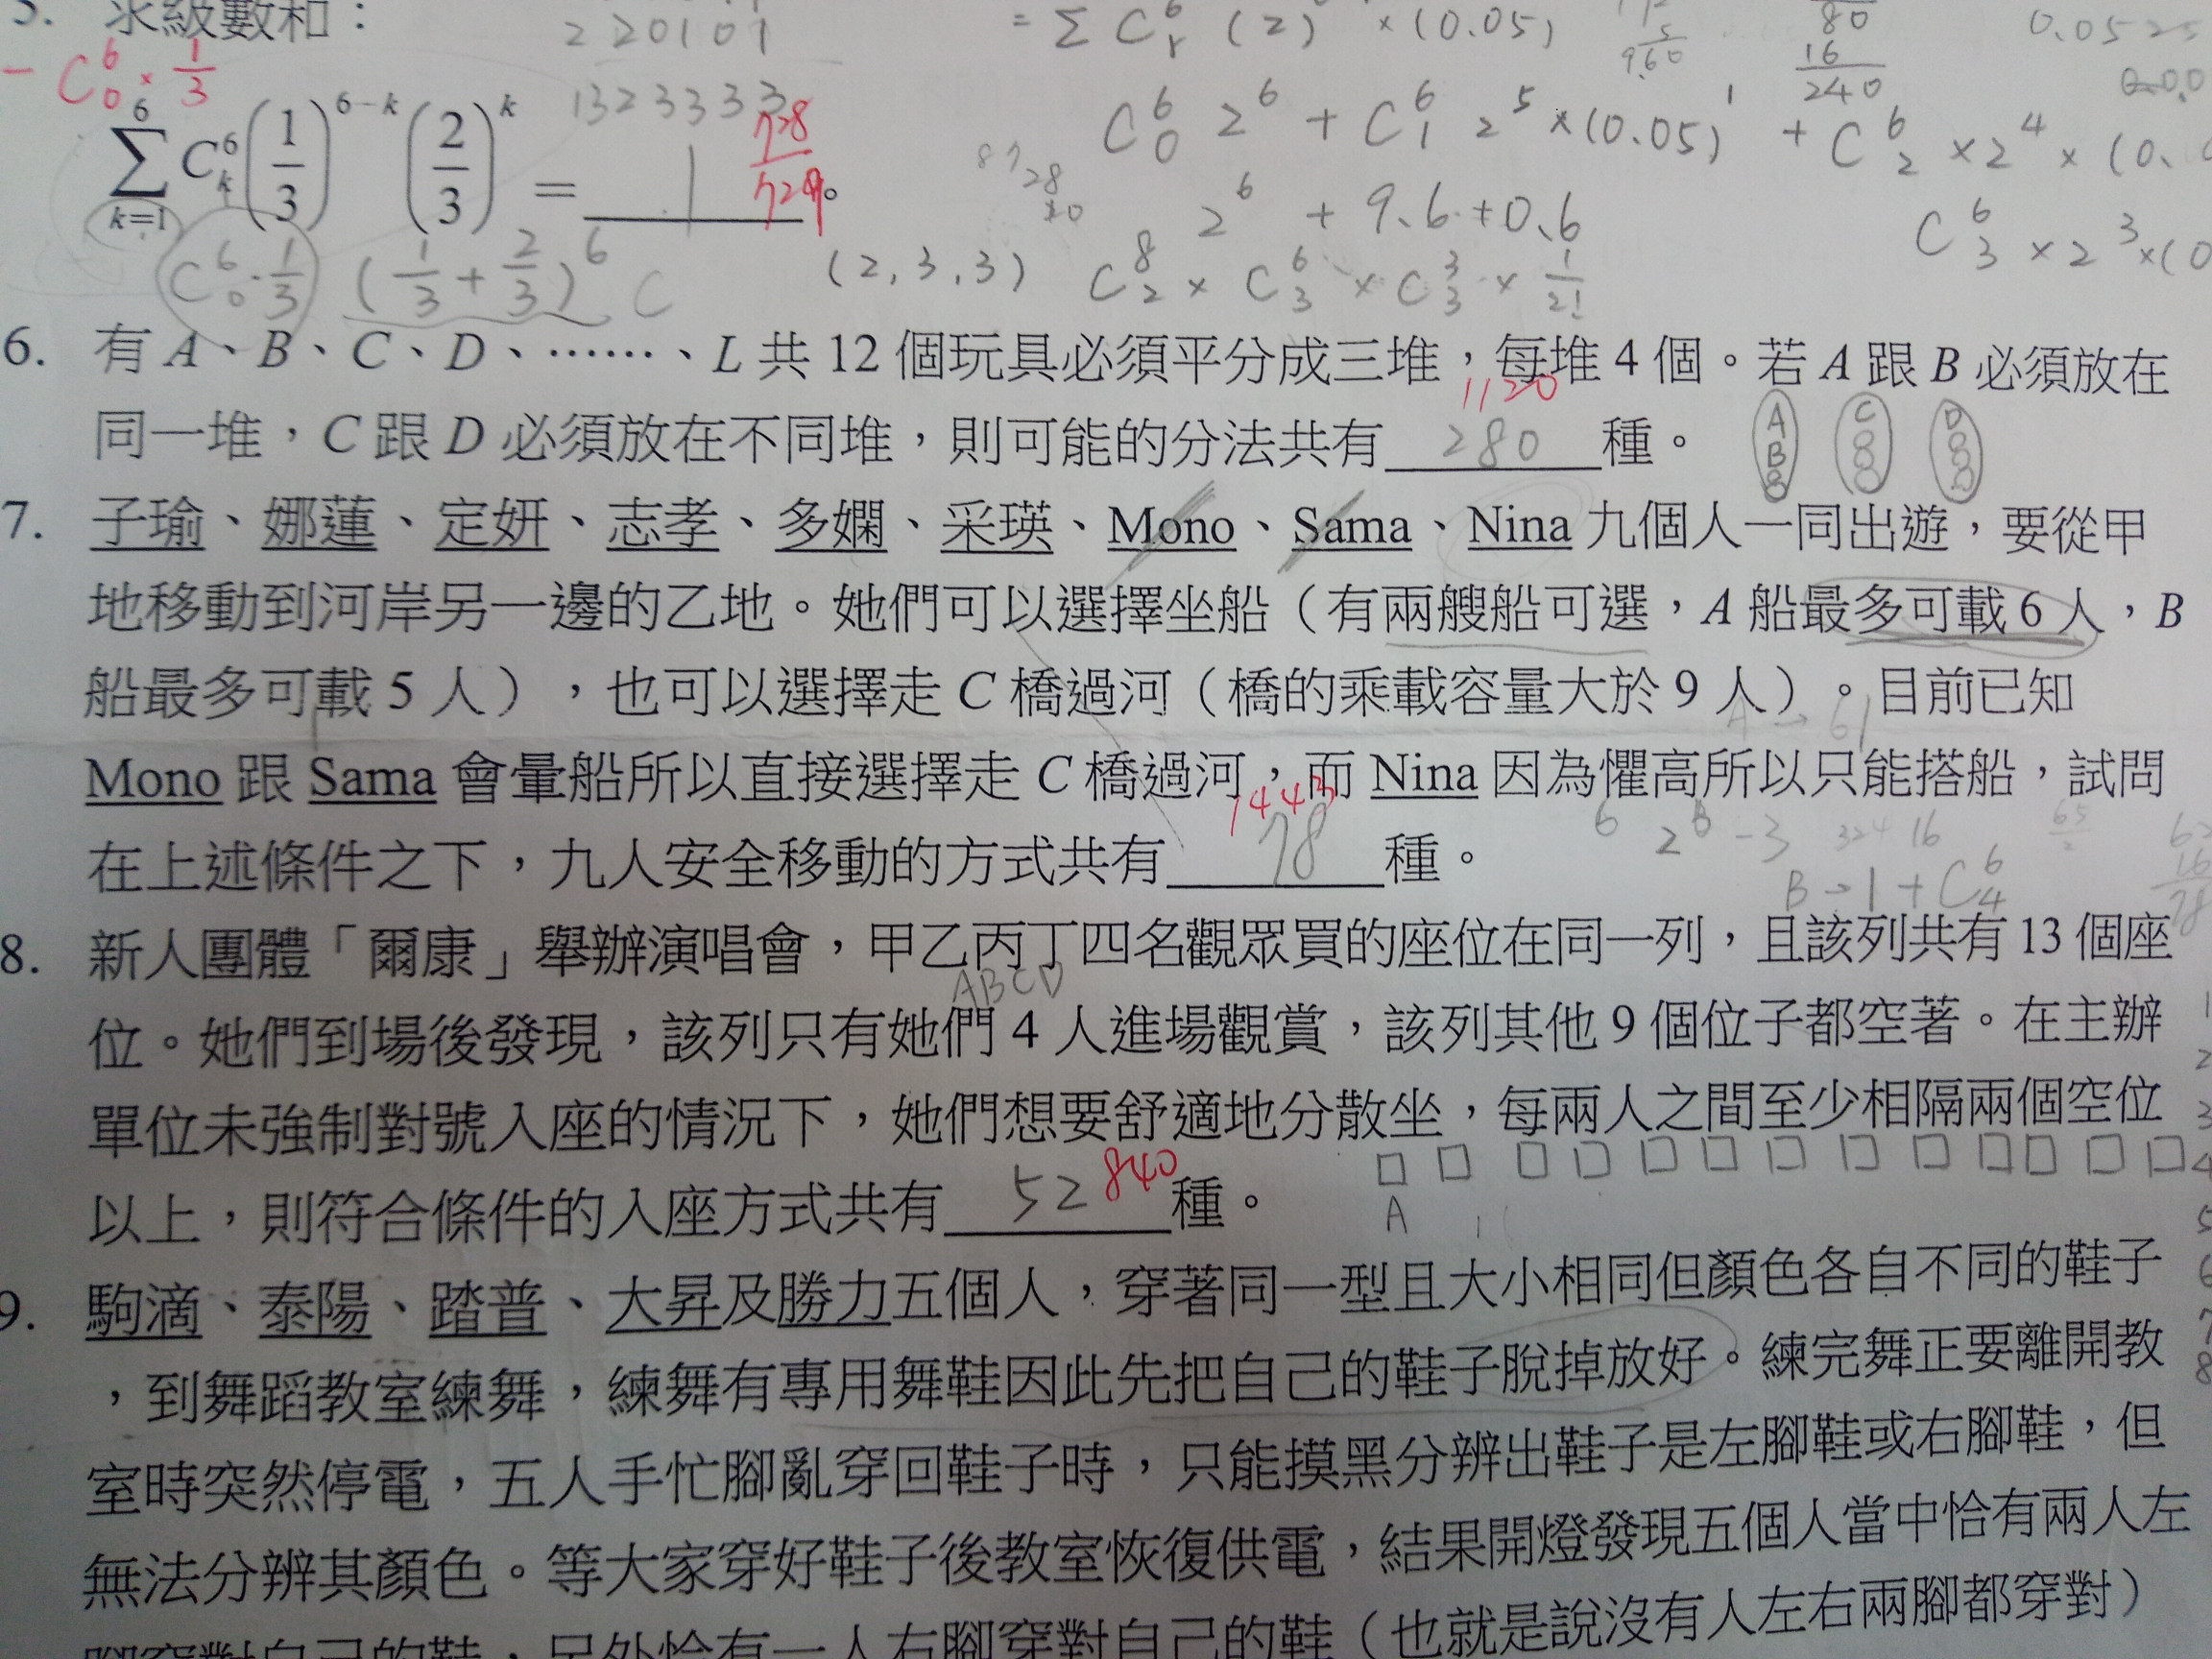 5. 求級數和：
220101
= Σ C 6 r (2) × (0.05)
80
16
240
0.0525
− C 6 0 × 1/3
1323333
5
9.60
6 Σ k=1 C 6 k (1/3)^6−k (2/3)^k = 1 728/729 。
C 6 0 2^6 + C 6 1 2^5 × (0.05)^1 + C 6 2 × 2^4 × (0.
2^6 + 9.6 + 0.6
C 6 3 × 2^3 × (0
C 6 0 · 1/3 (1/3 + 2/3)^6 C
(2,3,3) C 8 2 × C 6 3 × C 3 3 × 1/2!
6. 有 A、B、C、D、……、L 共 12 個玩具必須平分成三堆，每堆 4 個。若 A 跟 B 必須放在
1120
同一堆，C 跟 D 必須放在不同堆，則可能的分法共有 280 種。
A B C D
7. 子瑜、娜蓮、定妍、志孝、多嫻、采瑛、Mono、Sama、Nina 九個人一同出遊，要從甲
地移動到河岸另一邊的乙地。她們可以選擇坐船（有兩艘船可選，A 船最多可載 6 人，B
船最多可載 5 人），也可以選擇走 C 橋過河（橋的乘載容量大於 9 人）。目前已知
A → 61
Mono 跟 Sama 會暈船所以直接選擇走 C 橋過河，而 Nina 因為懼高所以只能搭船，試問
1443
在上述條件之下，九人安全移動的方式共有 78 種。
B → 1 + C 6 4
8. 新人團體「爾康」舉辦演唱會，甲乙丙丁四名觀眾買的座位在同一列，且該列共有 13 個座
ABCD
位。她們到場後發現，該列只有她們 4 人進場觀賞，該列其他 9 個位子都空著。在主辦
單位未強制對號入座的情況下，她們想要舒適地分散坐，每兩人之間至少相隔兩個空位
以上，則符合條件的入座方式共有 52 840 種。
A
1
2
3
4
5
6
7
8
9. 駒滴、泰陽、踏普、大昇及勝力五個人，穿著同一型且大小相同但顏色各自不同的鞋子
，到舞蹈教室練舞，練舞有專用舞鞋因此先把自己的鞋子脫掉放好。練完舞正要離開教
室時突然停電，五人手忙腳亂穿回鞋子時，只能摸黑分辨出鞋子是左腳鞋或右腳鞋，但
無法分辨其顏色。等大家穿好鞋子後教室恢復供電，結果開燈發現五個人當中恰有兩人左
腳穿對自己的鞋，另外恰有一人右腳穿對自己的鞋（也就是說沒有人左右兩腳都穿對）